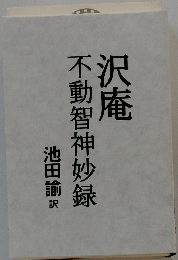 沢庵
不動智神妙録
池田諭 訳